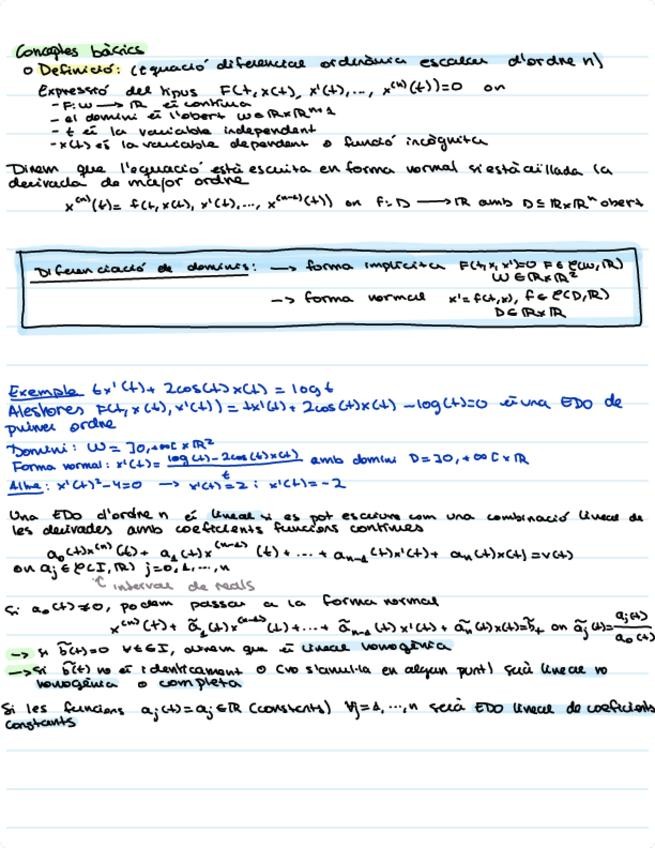 Conceptes bàsics
o Definició: (Equació diferencial ordinària escalar d'ordre n)
Expressió del tipus F(t, x(t), x'(t), ..., x⁽ⁿ⁾(t))=0 on
- F: W → ℝ és contínua
- el domini és l'obert W ⊆ ℝ×ℝⁿ⁺¹
- t és la variable independent
- x(t) és la variable dependent o funció incògnita
Direm que l'equació està escrita en forma normal si està aïllada la
derivada de major ordre
x⁽ⁿ⁾(t) = f(t, x(t), x'(t), ..., x⁽ⁿ⁻¹⁾(t)) on f: D → ℝ amb D ⊆ ℝ×ℝⁿ obert
Diferenciació de dominis: → forma implícita F(t,x,x')=0 F ∈ C(W,ℝ)
W ∈ ℝ×ℝ²
→ forma normal x'=f(t,x), f ∈ C(D,ℝ)
D ∈ ℝ×ℝ
Exemple tx'(t) + 2cos(t)x(t) = log t
Aleshores F(t, x(t), x'(t)) = tx'(t) + 2cos(t)x(t) - log(t)=0 és una EDO de
primer ordre
Domini: W = ]0,+∞[ × ℝ²
Forma normal: x'(t) = log(t)-2cos(t)x(t) / t amb domini D = ]0,+∞[ × ℝ
Altre: x'(t)²-4=0 → x'(t)=2 i x'(t)=-2
Una EDO d'ordre n és lineal si es pot escriure com una combinació lineal de
les derivades amb coeficients funcions contínues
a₀(t)x⁽ⁿ⁾(t) + a₁(t)x⁽ⁿ⁻¹⁾(t) + ... + aₙ₋₁(t)x'(t) + aₙ(t)x(t) = v(t)
on aⱼ ∈ C(I,ℝ) j=0,1,...,n
interval de reals
Si a₀(t) ≠ 0, podem passar a la forma normal
x⁽ⁿ⁾(t) + ã₁(t)x⁽ⁿ⁻¹⁾(t) + ... + ãₙ₋₁(t)x'(t) + ãₙ(t)x(t) = b̃ₜ on ãⱼ(t) = aⱼ(t)/a₀(t)
→ si b̃(t)=0 ∀t∈I, direm que és lineal homogènia
→ Si b̃(t) no és identicament 0 (no s'anul·la en algun punt) serà lineal no
homogènia o completa
Si les funcions aⱼ(t)=aⱼ∈ℝ (constants) ∀j=1,...,n serà EDO lineal de coeficients
constants